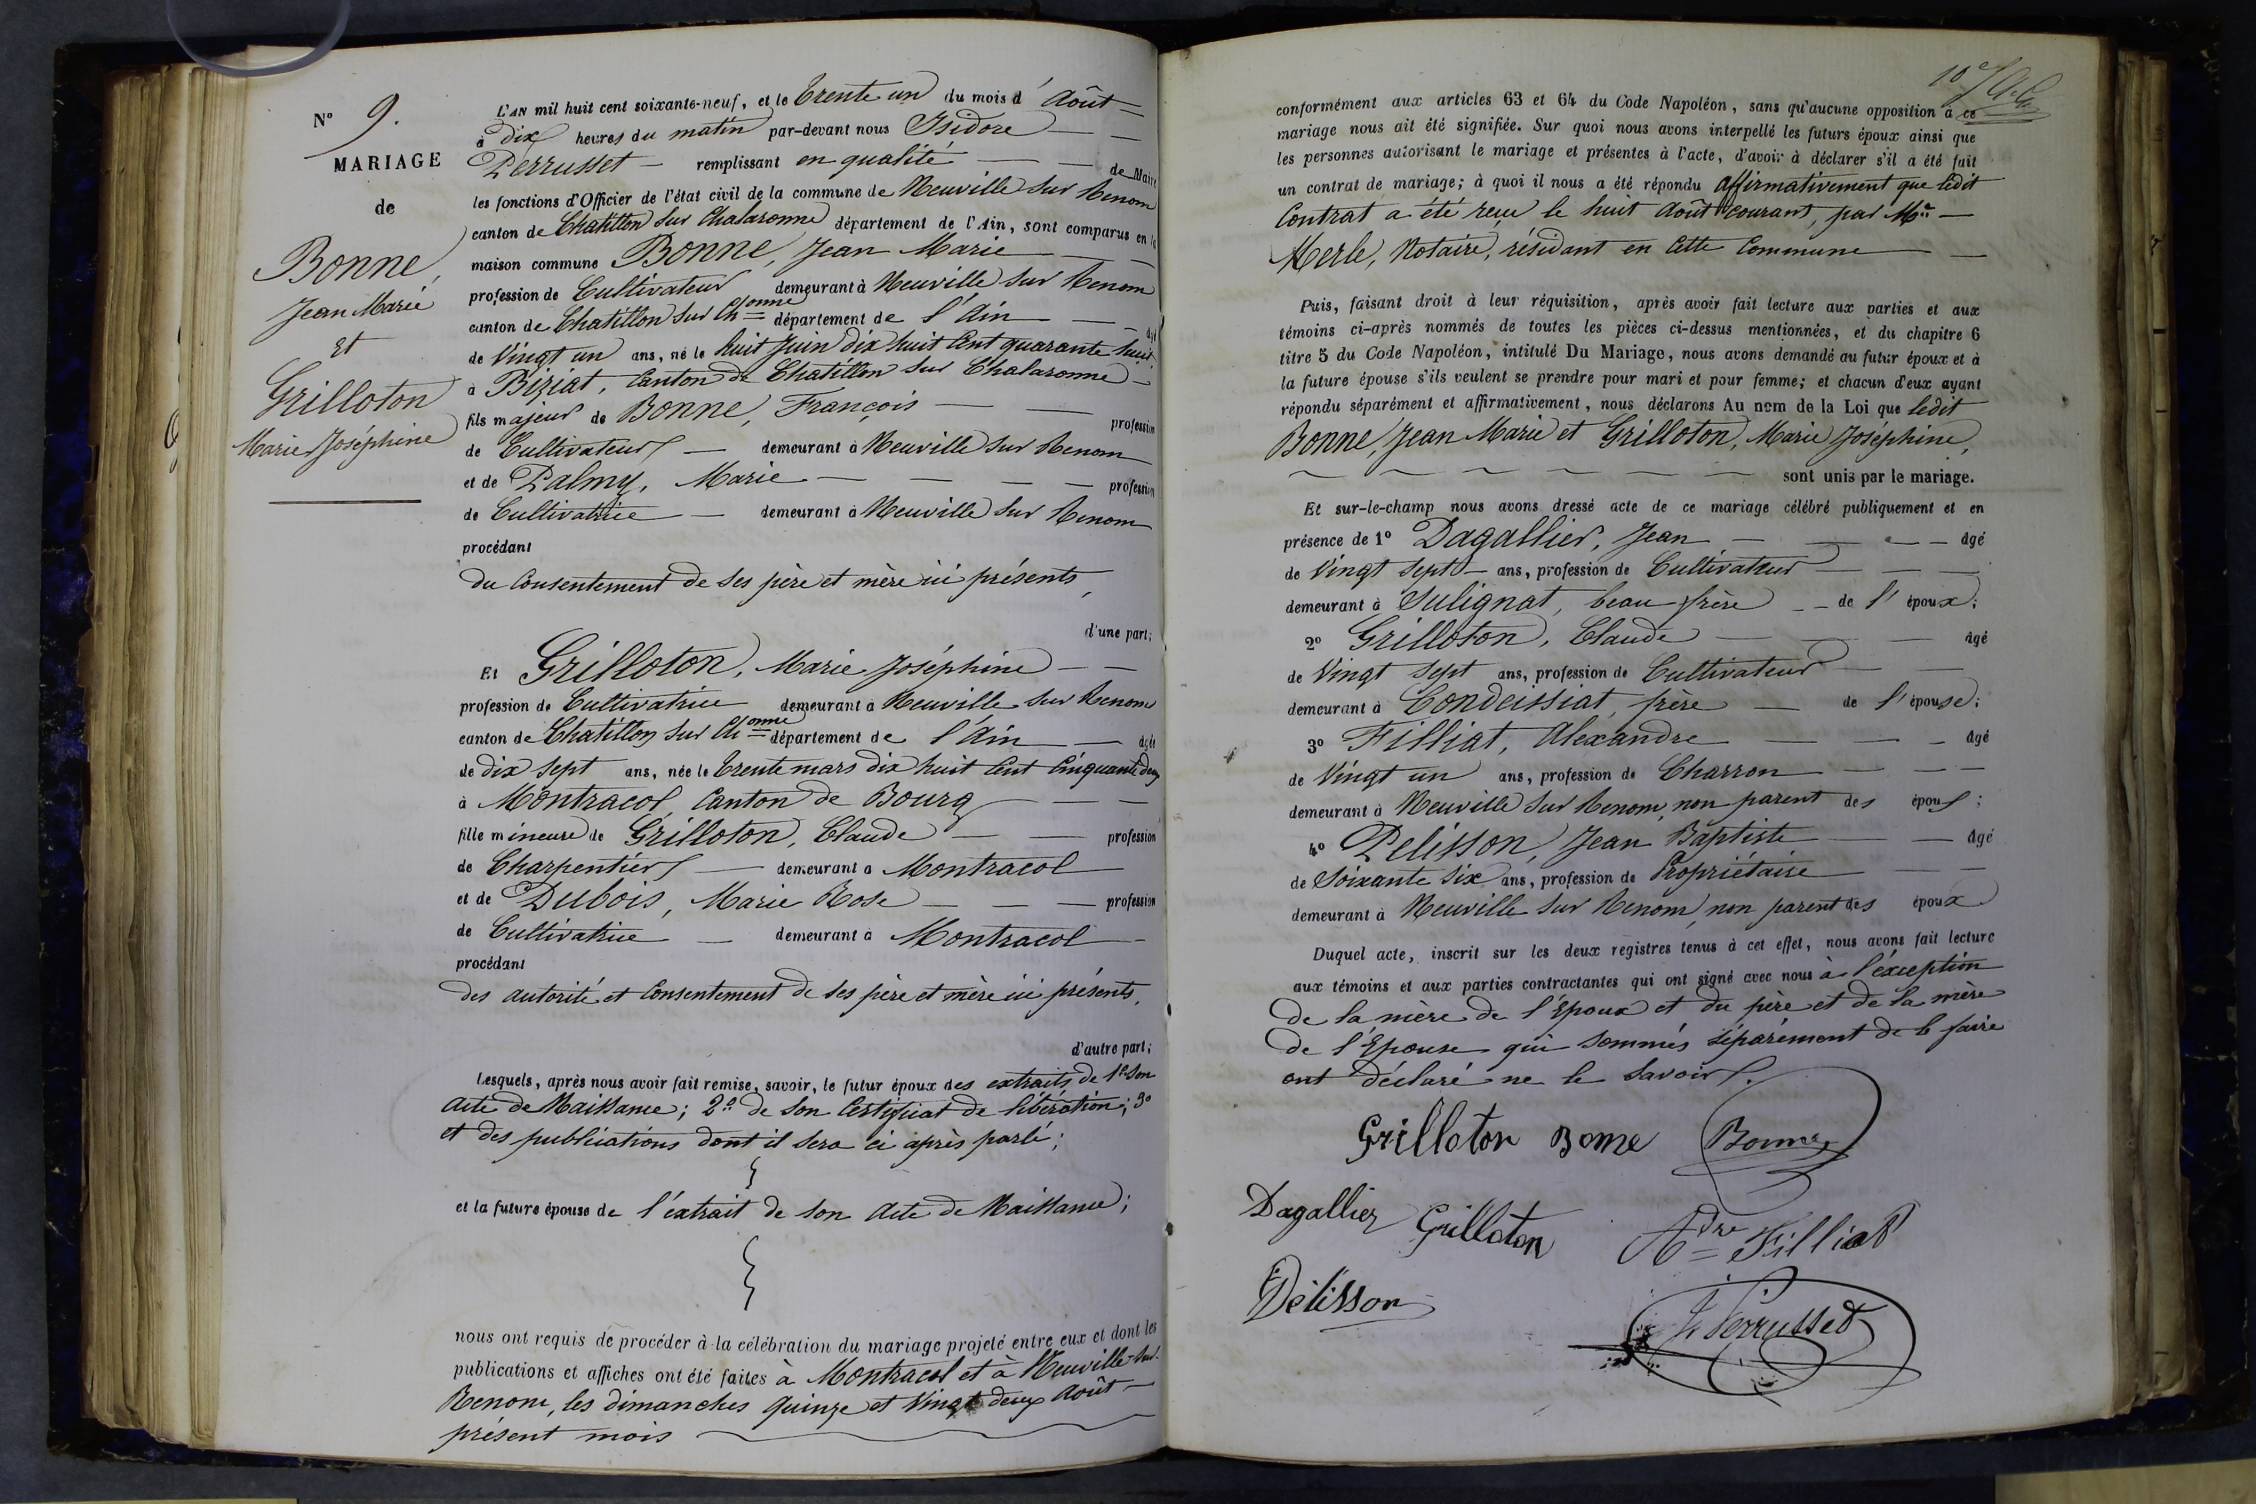 N° 9.
MARIAGE
de
Bonne,
Jean Marie
et
Grilloton
Marie Joséphine
L'AN mil huit cent soixante-neuf, et le Trente un du mois d'Août
à dix heures du matin par-devant nous Isidore
Perrusset remplissant en qualité de Maire
les fonctions d'Officier de l'état civil de la commune de Neuville sur Renom
canton de Chatillon sur Chalaronne département de l'Ain, sont comparus en la
maison commune Bonne, Jean Marie
profession de Cultivateur demeurant à Neuville sur Renom
canton de Chatillon sur Ch onne département de l'Ain âgé
de Vingt un ans, né le huit Juin dix huit Cent quarante huit
à Biziat, Canton de Chatillon sur Chalaronne
fils majeur de Bonne, François profession
de Cultivateur demeurant à Neuville sur Renom
et de Palmy, Marie profession
de Cultivatrice demeurant à Neuville sur Renom
procédant
du Consentement de ses père et mère ici présents,
d'une part;
Et Grilloton, Marie Joséphine
profession de Cultivatrice demeurant à Neuville sur Renom
canton de Chatillon sur Ch onne département de l'Ain âgée
de dix sept ans, née le Trente mars dix huit Cent Cinquante deux
à Montracol, Canton de Bourg
fille mineure de Grilloton, Claude profession
de Charpentier demeurant à Montracol
et de Dubois, Marie Rose profession
de Cultivatrice demeurant à Montracol
procédant
des autorité et Consentement de ses père et mère ici présents,
d'autre part;
Lesquels, après nous avoir fait remise, savoir, le futur époux des extraits de 1° son
Acte de Naissance; 2° de son Certificat de libération; 3°
et des publications dont il sera ci après parlé;
et la future épouse de l'extrait de son Acte de Naissance;
nous ont requis de procéder à la célébration du mariage projeté entre eux et dont les
publications et affiches ont été faites à Montracol et à Neuville-sur-
Renom, les dimanches quinze et Vingt deux Août
présent mois
10e
conformément aux articles 63 et 64 du Code Napoléon, sans qu'aucune opposition à ce
mariage nous ait été signifiée. Sur quoi nous avons interpellé les futurs époux ainsi que
les personnes autorisant le mariage et présentes à l'acte, d'avoir à déclarer s'il a été fait
un contrat de mariage; à quoi il nous a été répondu Affirmativement que ledit
Contrat a été reçu le huit Août courant, par Me
Merle, Notaire, résidant en Cette Commune
Puis, faisant droit à leur réquisition, après avoir fait lecture aux parties et aux
témoins ci-après nommés de toutes les pièces ci-dessus mentionnées, et du chapitre 6
titre 5 du Code Napoléon, intitulé Du Mariage, nous avons demandé au futur époux et à
la future épouse s'ils veulent se prendre pour mari et pour femme; et chacun d'eux ayant
répondu séparément et affirmativement, nous déclarons Au nom de la Loi que ledit
Bonne, Jean Marie et Grilloton, Marie Joséphine,
sont unis par le mariage.
Et sur-le-champ nous avons dressé acte de ce mariage célébré publiquement et en
présence de 1° Dagallier, Jean âgé
de Vingt sept ans, profession de Cultivateur
demeurant à Sulignat, beau frère de l'époux;
2° Grilloton, Claude âgé
de Vingt sept ans, profession de Cultivateur
demeurant à Condeissiat, frère de l'épouse;
3° Filliat, Alexandre âgé
de Vingt un ans, profession de Charron
demeurant à Neuville sur Renom, non parent des époux;
4° Pelisson, Jean Baptiste âgé
de Soixante six ans, profession de Propriétaire
demeurant à Neuville sur Renom, non parent des époux
Duquel acte, inscrit sur les deux registres tenus à cet effet, nous avons fait lecture
aux témoins et aux parties contractantes qui ont signé avec nous à l'éxception
de la mère de l'Epoux et du père et de la mère
de l'Epouse qui sommés séparément de le faire
ont déclaré ne le savoir.
Grilloton Bonne Bonne
Dagallier Grilloton Adre Filliat
Pélisson
I. Perrusset